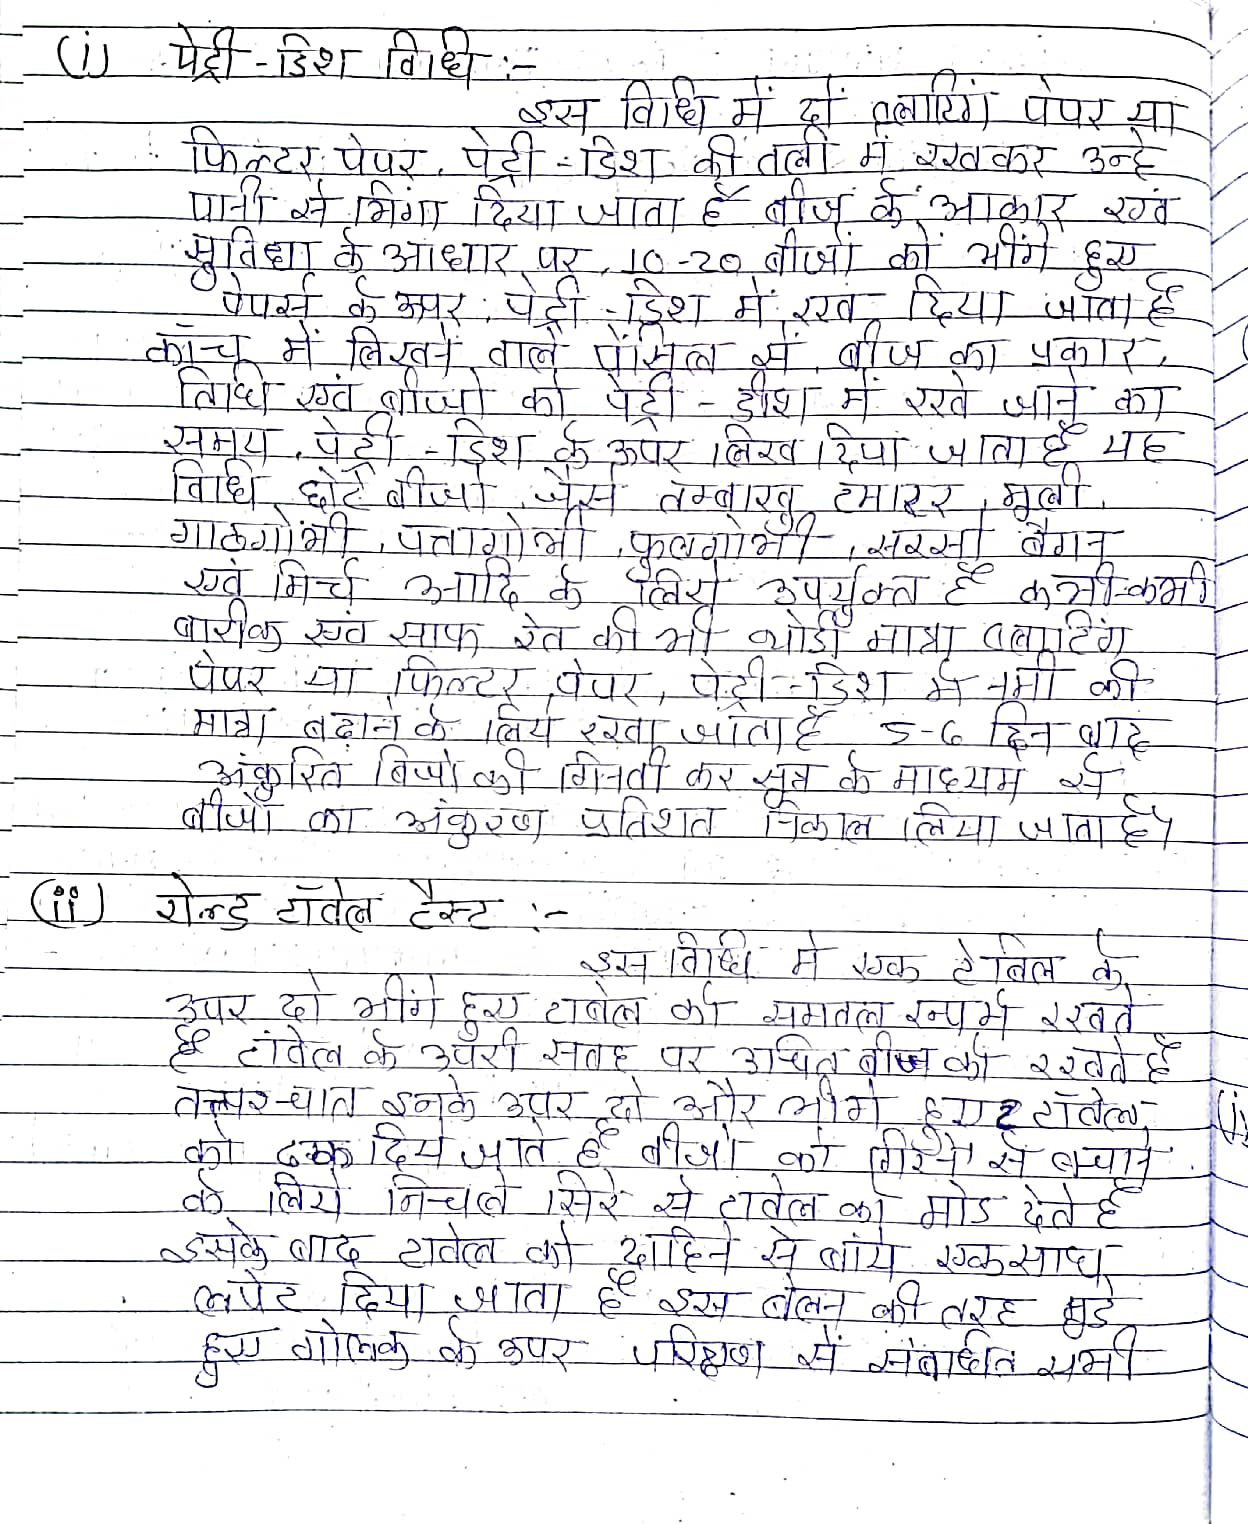 (i) पेट्री-डिश विधि :-
इस विधि में दो ब्लाटिंग पेपर या
फिल्टर पेपर, पेट्री-डिश की तली में रखकर उन्हे
पानी से भिंगा दिया जाता हैं बीज के आकार एवं
सुविधा के आधार पर, 10-20 बीजों को भींगे हुए
पेपर्स के ऊपर, पेट्री-डिश में रख दिया जाता है
काँच में लिखने वाले पेंसिल से बीज का प्रकार,
तिथि एवं बीजो को पेट्री-डीश में रखे जाने का
समय, पेट्री-डिश के ऊपर लिख दिया जाता हैं यह
विधि छोटे बीजो, जैसे तम्बाखु टमाटर, मुली,
गाठगोभी, पत्तागोभी, फुलगोभी, सरसो बैगन
एवं मिर्च आदि के लिये उपर्युक्त है कभी-कभी
बारीक एवं साफ रेत की भी थोडी मात्रा ब्लाटिंग
पेपर या फिल्टर पेपर, पेट्री-डिश में नमी की
मात्रा बढ़ाने के लिये रखा जाता हैं 5-6 दिन बाद
अंकुरित बिजों की गिनती कर सूत्र के माध्यम से
बीजों का अंकुरण प्रतिशत निकाल लिया जाता है।
(ii) रोल्ड टॉवेल टैस्ट :-
इस विधि मे एक टेबिल के
उपर दो भींगे हुए टावेल को समतल रूप में रखते
है टांवेल के उपरी सतह पर उचित बीज को रखते हैं
तत्पश्चात इनके उपर दो और भीगे हुए 2 टॉवेल
को ढक दिये जाते है बीजो को गिरने से बचाने
के लिये निचले सिरे से टावेल को मोड देते है
इसके बाद टावेल को दाहिने से बांये एक साथ
लपेट दिया जाता है इस बेलन की तरह मुडे
हुए गोलक के उपर परिक्षण से संबाधित सभी